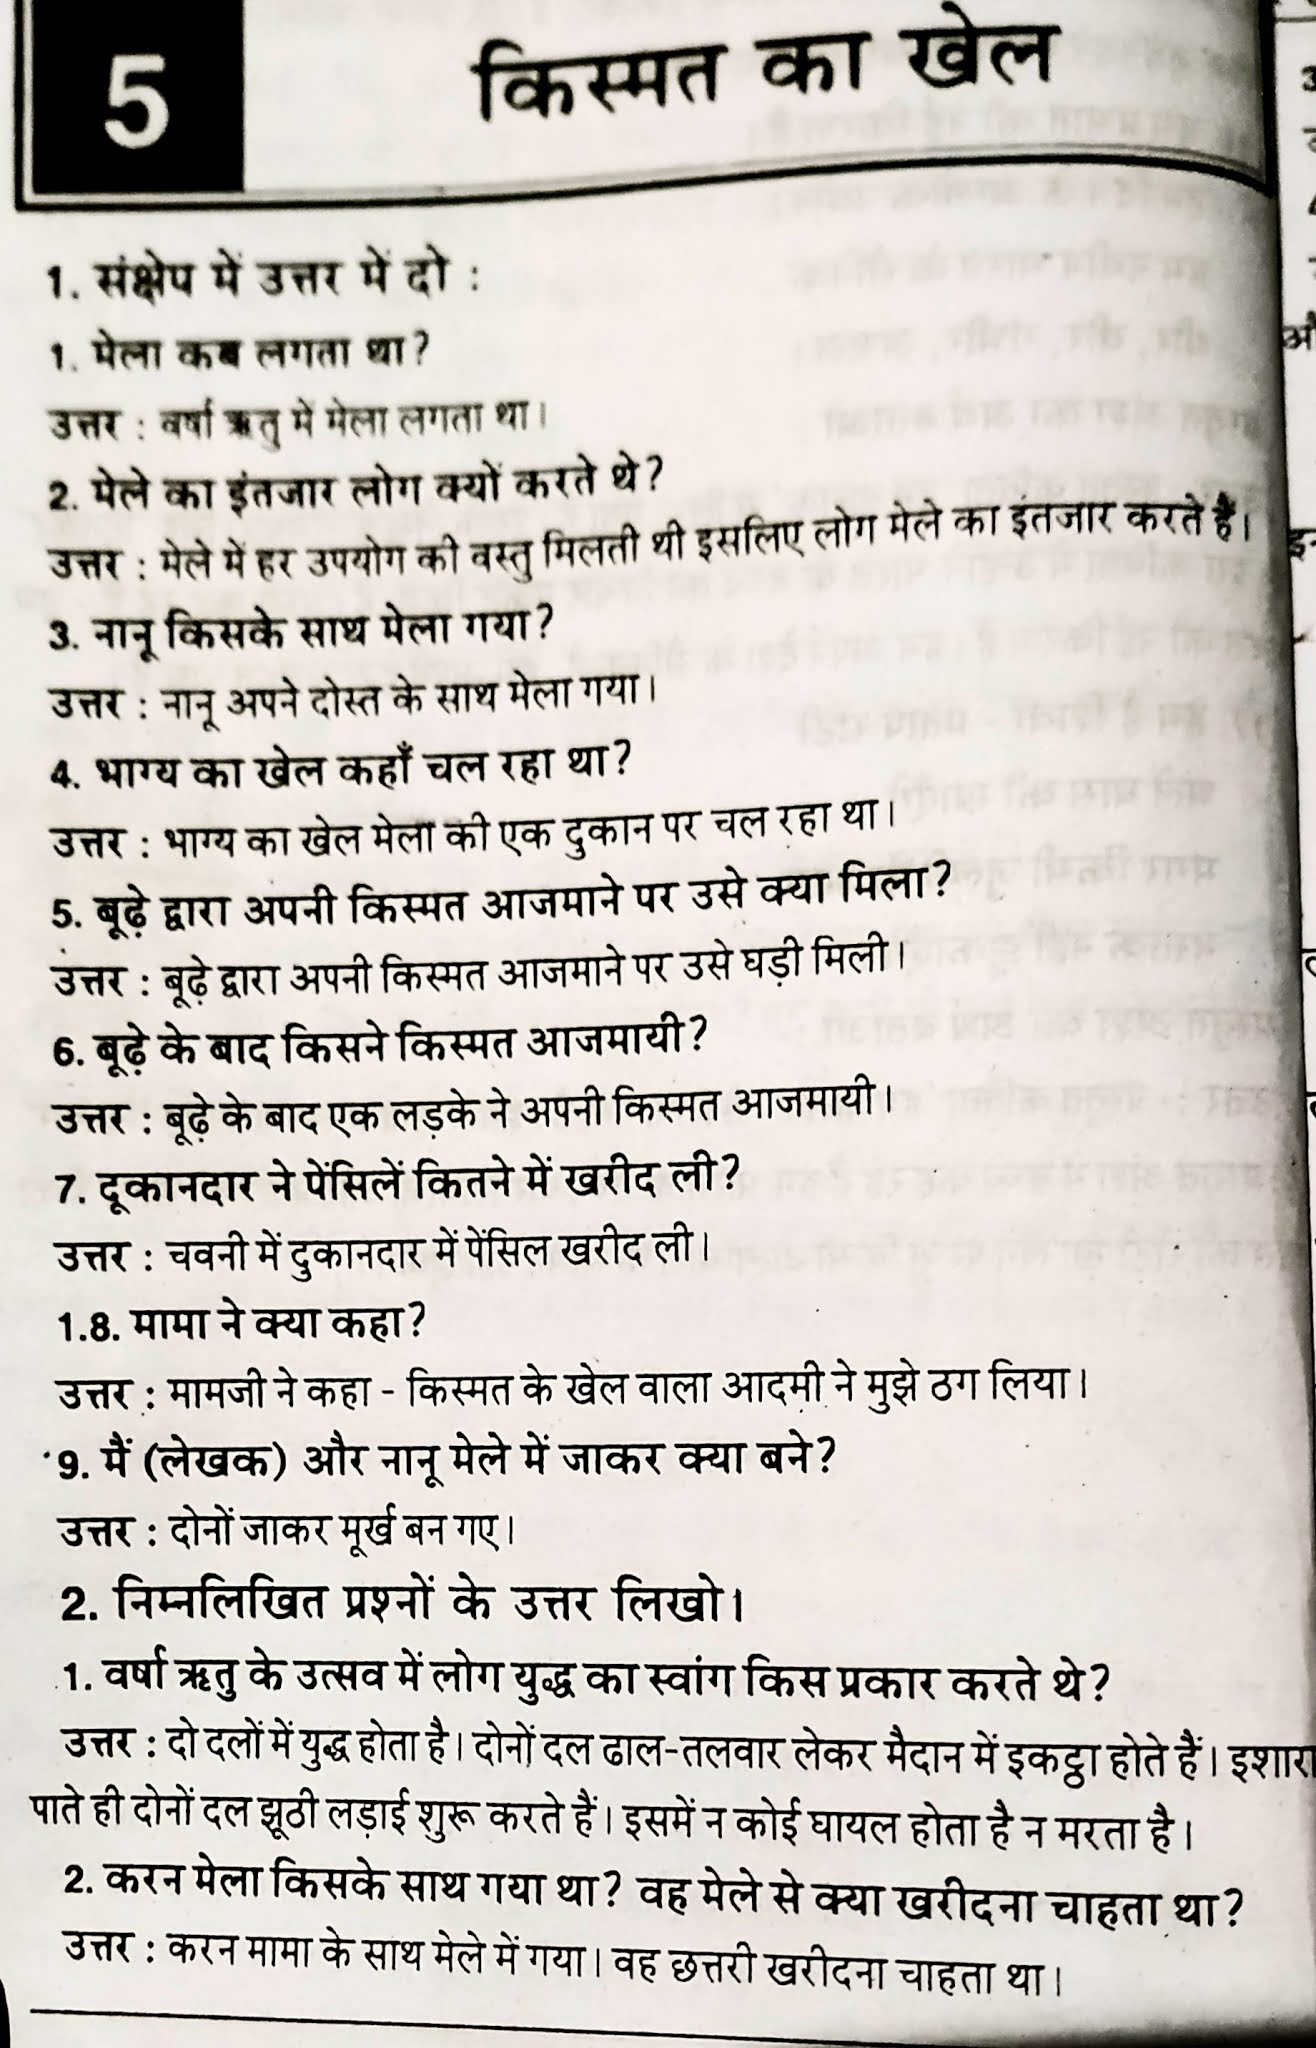 5
किस्मत का खेल
1. संक्षेप में उत्तर में दो :
1. मेला कब लगता था?
उत्तर : वर्षा ऋतु में मेला लगता था।
2. मेले का इंतजार लोग क्यों करते थे?
उत्तर : मेले में हर उपयोग की वस्तु मिलती थी इसलिए लोग मेले का इंतजार करते हैं।
3. नानू किसके साथ मेला गया?
उत्तर : नानू अपने दोस्त के साथ मेला गया।
4. भाग्य का खेल कहाँ चल रहा था?
उत्तर : भाग्य का खेल मेला की एक दुकान पर चल रहा था।
5. बूढ़े द्वारा अपनी किस्मत आजमाने पर उसे क्या मिला?
उत्तर : बूढ़े द्वारा अपनी किस्मत आजमाने पर उसे घड़ी मिली।
6. बूढ़े के बाद किसने किस्मत आजमायी?
उत्तर : बूढ़े के बाद एक लड़के ने अपनी किस्मत आजमायी।
7. दूकानदार ने पेंसिलें कितने में खरीद ली?
उत्तर : चवनी में दुकानदार में पेंसिल खरीद ली।
1.8. मामा ने क्या कहा?
उत्तर : मामजी ने कहा - किस्मत के खेल वाला आदमी ने मुझे ठग लिया।
9. मैं (लेखक) और नानू मेले में जाकर क्या बने?
उत्तर : दोनों जाकर मूर्ख बन गए।
2. निम्नलिखित प्रश्नों के उत्तर लिखो।
1. वर्षा ऋतु के उत्सव में लोग युद्ध का स्वांग किस प्रकार करते थे?
उत्तर : दो दलों में युद्ध होता है। दोनों दल ढाल-तलवार लेकर मैदान में इकट्ठा होते हैं। इशारा
पाते ही दोनों दल झूठी लड़ाई शुरू करते हैं। इसमें न कोई घायल होता है न मरता है।
2. करन मेला किसके साथ गया था? वह मेले से क्या खरीदना चाहता था?
उत्तर : करन मामा के साथ मेले में गया। वह छत्तरी खरीदना चाहता था।